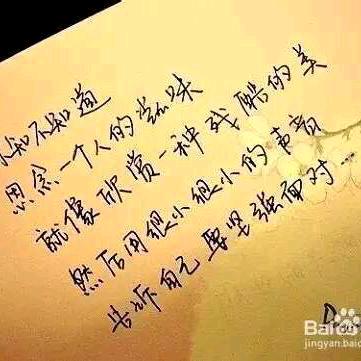 你知不知道
思念一个人的滋味
就像欣赏一种残酷的美
然后用很小很小的声音
告诉自己要坚强面对…
Bai 百度经验
jingyan.baidu.com